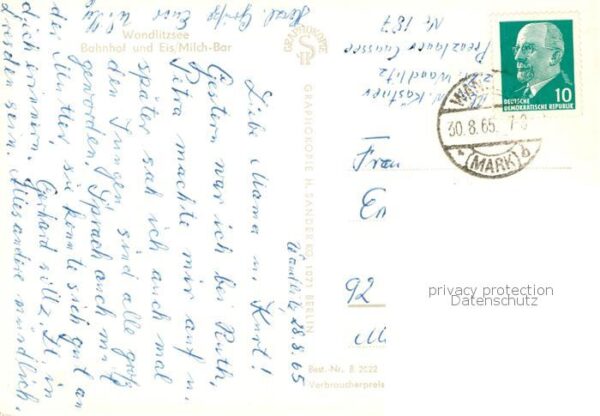 Wandlitzsee
Bahnhof und Eis/Milch-Bar
Wandlitz, 28.8.65
Liebe Mama u. Kurt!
Gestern war ich bei Ruth,
Petra machte mir auf u.
später sah ich auch mal
den Jungen, sind alle groß
geworden. Sprach auch mit
der Mutter, sie konnte sich gut an
dich erinnern. Gerhard soll z. Zt. in
Dresden sein. Alles andere mündlich.
Herzl. Grüße Eure
GRAPHOKOPIE
GRAPHOKOPIE H. SANDER KG, 1071 BERLIN
Kästner
Wandlitz
Prenzlauer Chaussee
Nr. 187
DEUTSCHE
DEMOKRATISCHE REPUBLIK
10
30.8.65
(MARK)
b
Frau
92
privacy protection
Datenschutz
Best.-Nr. B 2022
Verbraucherpreis